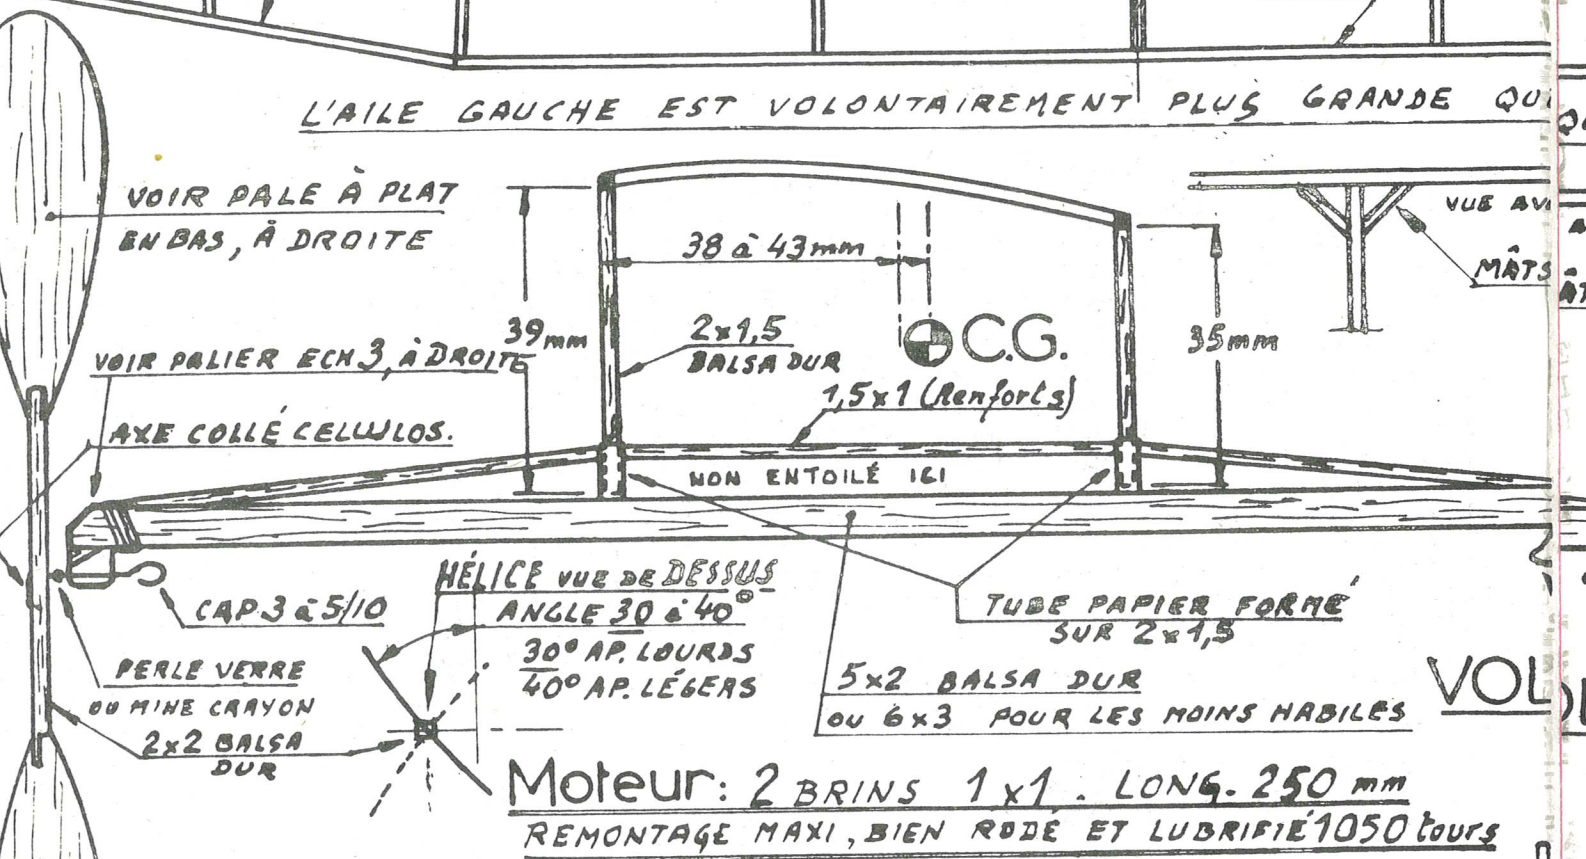 L'AILE GAUCHE EST VOLONTAIREMENT PLUS GRANDE
VOIR PALE À PLAT
EN BAS, À DROITE
VUE
MÂTS
38 à 43mm
39mm
2x1,5
BALSA DUR
C.G.
35mm
VOIR PALIER ECH 3, à DROITE
1,5x1 (Renforts)
AXE COLLÉ CELLULOS.
NON ENTOILÉ ICI
HÉLICE VUE DE DESSUS
ANGLE 30 à 40°
30° AP. LOURDS
40° AP. LÉGERS
CAP. 3 à 5/10
TUBE PAPIER FORMÉ
SUR 2x1,5
PERLE VERRE
OU MINE CRAYON
2x2 BALSA
DUR
5x2 BALSA DUR
OU 6x3 POUR LES MOINS HABILES
VOL
Moteur: 2 BRINS 1x1. LONG. 250 mm
REMONTAGE MAXI, BIEN RODÉ ET LUBRIFIÉ 1050 tours